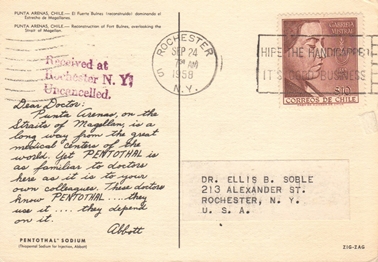 PUNTA ARENAS, CHILE.— El Puerto Bulnes (reconstruido) dominando el
Estrecho de Magallanes.
PUNTA ARENAS, CHILE.— Reconstruction of Fort Bulnes, overlooking the
Strait of Magellan.
Received at
Rochester N. Y.
Uncancelled.
ROCHESTER
SEP 24
AM
1958
N.Y.
HIRE THE HANDICAPPED
IT'S GOOD BUSINESS
GABRIELA
MISTRAL
CORREOS DE CHILE
Dear Doctor:
Punta Arenas, on the
Straits of Magellan, is a
long way from the great
medical centers of the
world. Yet PENTOTHAL is
as familiar to doctors
here as it is to your
own colleagues. These doctors
know PENTOTHAL....they
use it....they depend
on it.
Abbott
DR. ELLIS B. SOBLE
213 ALEXANDER ST.
ROCHESTER, N. Y.
U. S. A.
PENTOTHAL® SODIUM
(Thiopental Sodium for Injection, Abbott)
ZIG-ZAG